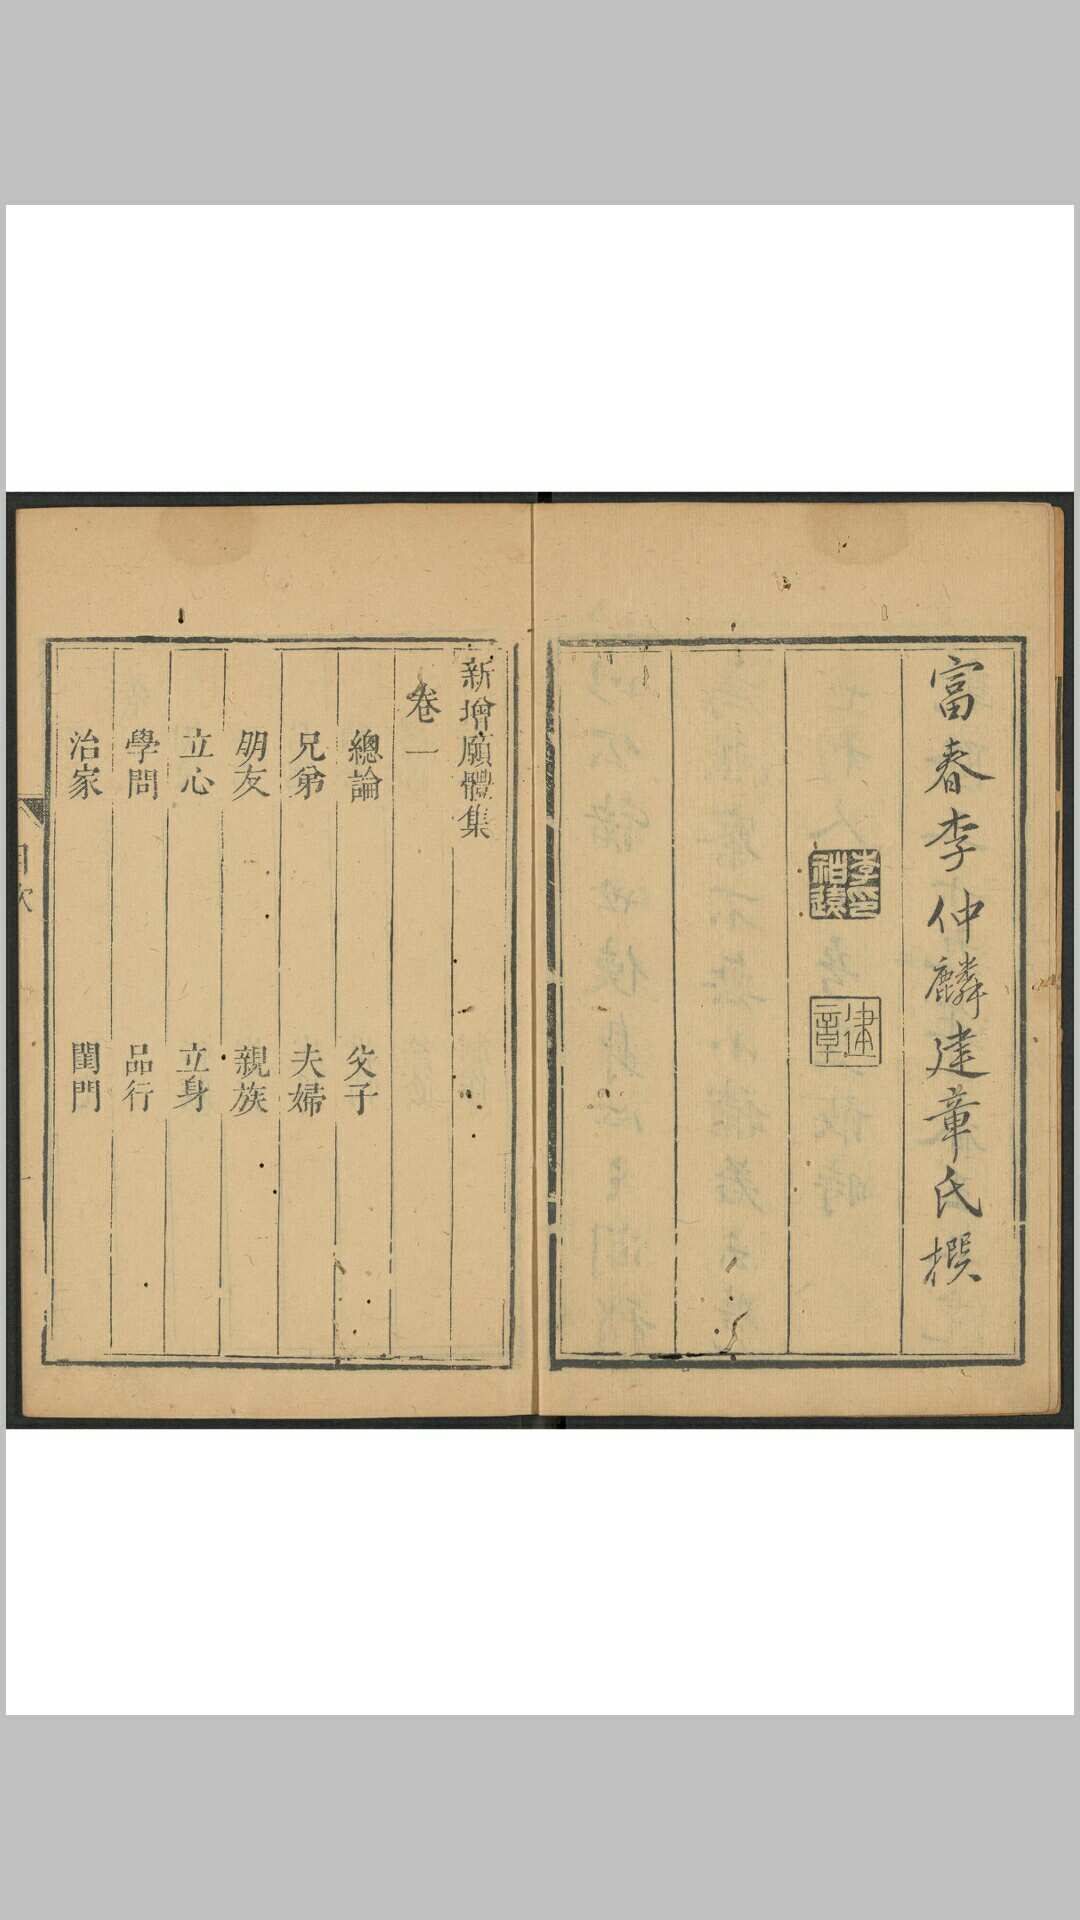 富春李仲麟建章氏撰
李印祖遠
建章
新增願體集
卷一
總論 父子
兄弟 夫婦
朋友 親族
立心 立身
學問 品行
治家 閨門
目次
一